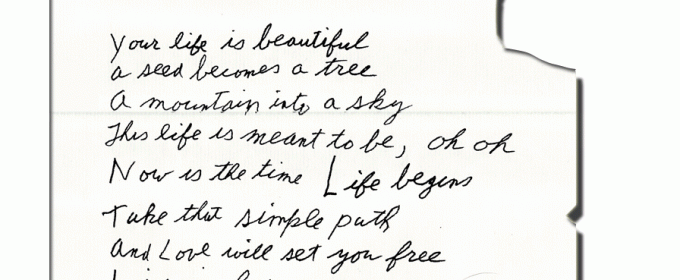 Your life is beautiful
a seed becomes a tree
A mountain into a sky
This life is meant to be, oh oh
Now is the time Life begins
Take that simple path
And Love will set you free